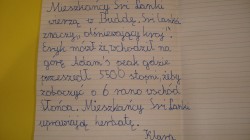 Mieszkańcy Sri Lanki
wierzą w Buddę. Sri Lanka
znaczy „olśniewający kraj".
Eryk mówił że wchodził na
górę Adam's peak gdzie
przeszedł 5500 stopni, żeby
zobaczyć o 6 rano wschód
słońca. Mieszkańcy Sri Lanki
uprawiają herbatę.
Klara